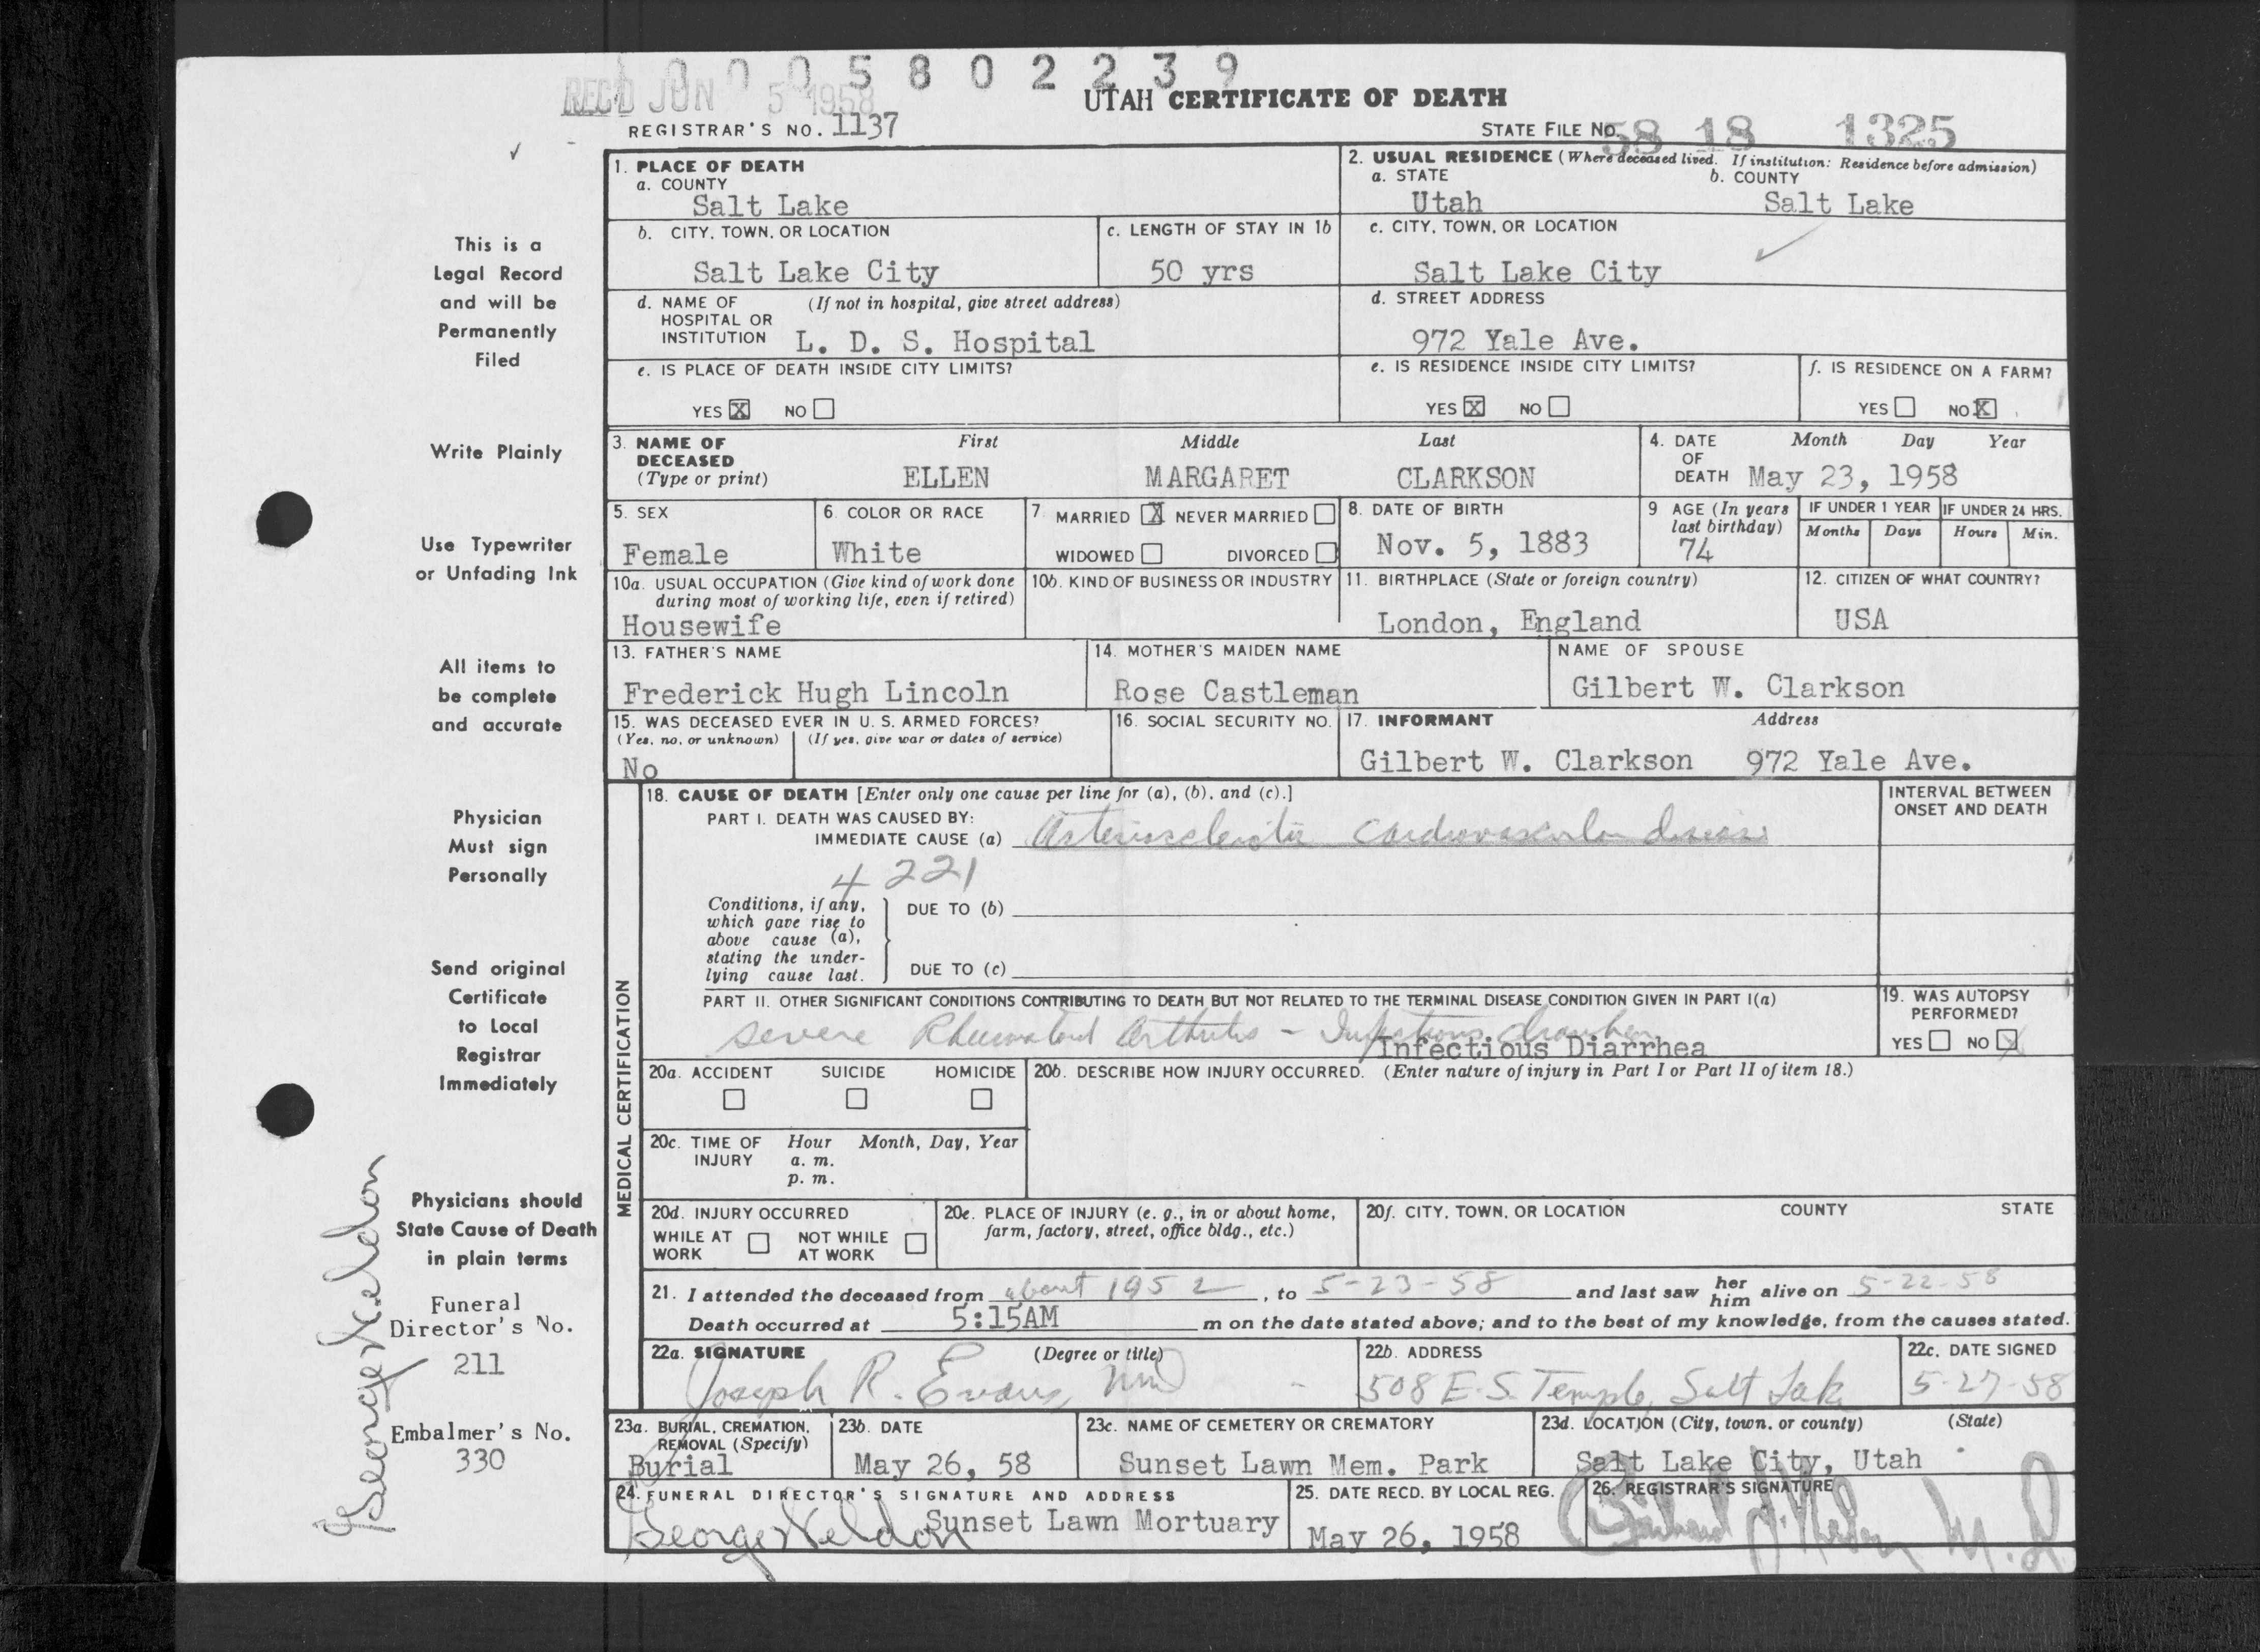 1 0 0 0 5 8 0 2 2 3 9
REC'D JUN 5 1958
UTAH CERTIFICATE OF DEATH
REGISTRAR'S NO. 1137
STATE FILE NO. 58 18 1325
This is a
Legal Record
and will be
Permanently
Filed
Write Plainly
Use Typewriter
or Unfading Ink
All items to
be complete
and accurate
Physician
Must sign
Personally
Send original
Certificate
to Local
Registrar
Immediately
Physicians should
State Cause of Death
in plain terms
Funeral
Director's No.
211
Embalmer's No.
330
1. PLACE OF DEATH
a. COUNTY
Salt Lake
2. USUAL RESIDENCE (Where deceased lived. If institution: Residence before admission)
a. STATE b. COUNTY
Utah Salt Lake
b. CITY, TOWN, OR LOCATION
Salt Lake City
c. LENGTH OF STAY IN 1b
50 yrs
c. CITY, TOWN, OR LOCATION
Salt Lake City
d. NAME OF (If not in hospital, give street address)
HOSPITAL OR
INSTITUTION L. D. S. Hospital
d. STREET ADDRESS
972 Yale Ave.
e. IS PLACE OF DEATH INSIDE CITY LIMITS?
YES X NO
e. IS RESIDENCE INSIDE CITY LIMITS?
YES X NO
f. IS RESIDENCE ON A FARM?
YES NO X
3. NAME OF First Middle Last
DECEASED
(Type or print) ELLEN MARGARET CLARKSON
4. DATE Month Day Year
OF
DEATH May 23, 1958
5. SEX
Female
6. COLOR OR RACE
White
7. MARRIED X NEVER MARRIED
WIDOWED DIVORCED
8. DATE OF BIRTH
Nov. 5, 1883
9 AGE (In years
last birthday)
74
IF UNDER 1 YEAR IF UNDER 24 HRS.
Months Days Hours Min.
10a. USUAL OCCUPATION (Give kind of work done
during most of working life, even if retired)
Housewife
10b. KIND OF BUSINESS OR INDUSTRY
11. BIRTHPLACE (State or foreign country)
London, England
12. CITIZEN OF WHAT COUNTRY?
USA
13. FATHER'S NAME
Frederick Hugh Lincoln
14. MOTHER'S MAIDEN NAME
Rose Castleman
NAME OF SPOUSE
Gilbert W. Clarkson
15. WAS DECEASED EVER IN U. S. ARMED FORCES?
(Yes, no, or unknown) (If yes, give war or dates of service)
No
16. SOCIAL SECURITY NO.
17. INFORMANT Address
Gilbert W. Clarkson 972 Yale Ave.
MEDICAL CERTIFICATION
18. CAUSE OF DEATH [Enter only one cause per line for (a), (b), and (c).]
INTERVAL BETWEEN
ONSET AND DEATH
PART I. DEATH WAS CAUSED BY:
IMMEDIATE CAUSE (a) Arteriosclerotic Cardiovascular disease
4221
Conditions, if any,
which gave rise to
above cause (a),
stating the under-
lying cause last.
DUE TO (b)
DUE TO (c)
PART II. OTHER SIGNIFICANT CONDITIONS CONTRIBUTING TO DEATH BUT NOT RELATED TO THE TERMINAL DISEASE CONDITION GIVEN IN PART I(a)
severe Rheumatoid Arthritis - Infectious diarrhea
Infectious Diarrhea
19. WAS AUTOPSY
PERFORMED?
YES NO X
20a. ACCIDENT SUICIDE HOMICIDE
20b. DESCRIBE HOW INJURY OCCURRED. (Enter nature of injury in Part I or Part II of item 18.)
20c. TIME OF Hour Month, Day, Year
INJURY a. m.
p. m.
20d. INJURY OCCURRED
WHILE AT NOT WHILE
WORK AT WORK
20e. PLACE OF INJURY (e. g., in or about home,
farm, factory, street, office bldg., etc.)
20f. CITY, TOWN, OR LOCATION COUNTY STATE
21. I attended the deceased from about 1952, to 5-23-58 and last saw her him alive on 5-22-58
Death occurred at 5:15AM m on the date stated above; and to the best of my knowledge, from the causes stated.
22a. SIGNATURE (Degree or title)
Joseph R. Evans MD
22b. ADDRESS
508 E. S. Temple, Salt Lake
22c. DATE SIGNED
5-27-58
23a. BURIAL, CREMATION,
REMOVAL (Specify)
Burial
23b. DATE
May 26, 58
23c. NAME OF CEMETERY OR CREMATORY
Sunset Lawn Mem. Park
23d. LOCATION (City, town, or county) (State)
Salt Lake City, Utah
24. FUNERAL DIRECTOR'S SIGNATURE AND ADDRESS
Sunset Lawn Mortuary
25. DATE RECD. BY LOCAL REG.
May 26, 1958
26. REGISTRAR'S SIGNATURE
M. D.